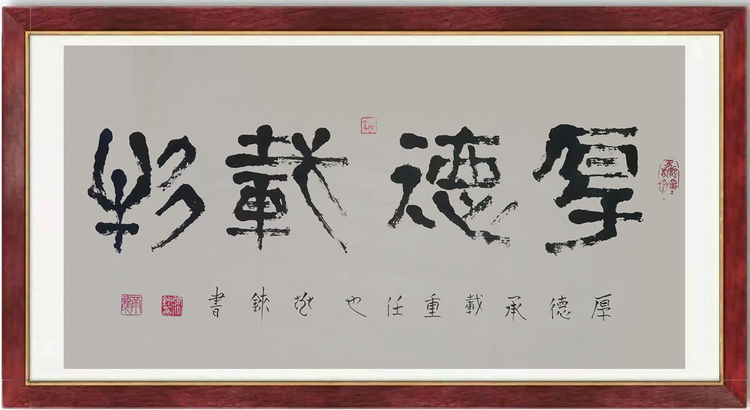 厚德載物
厚德承載重任也書